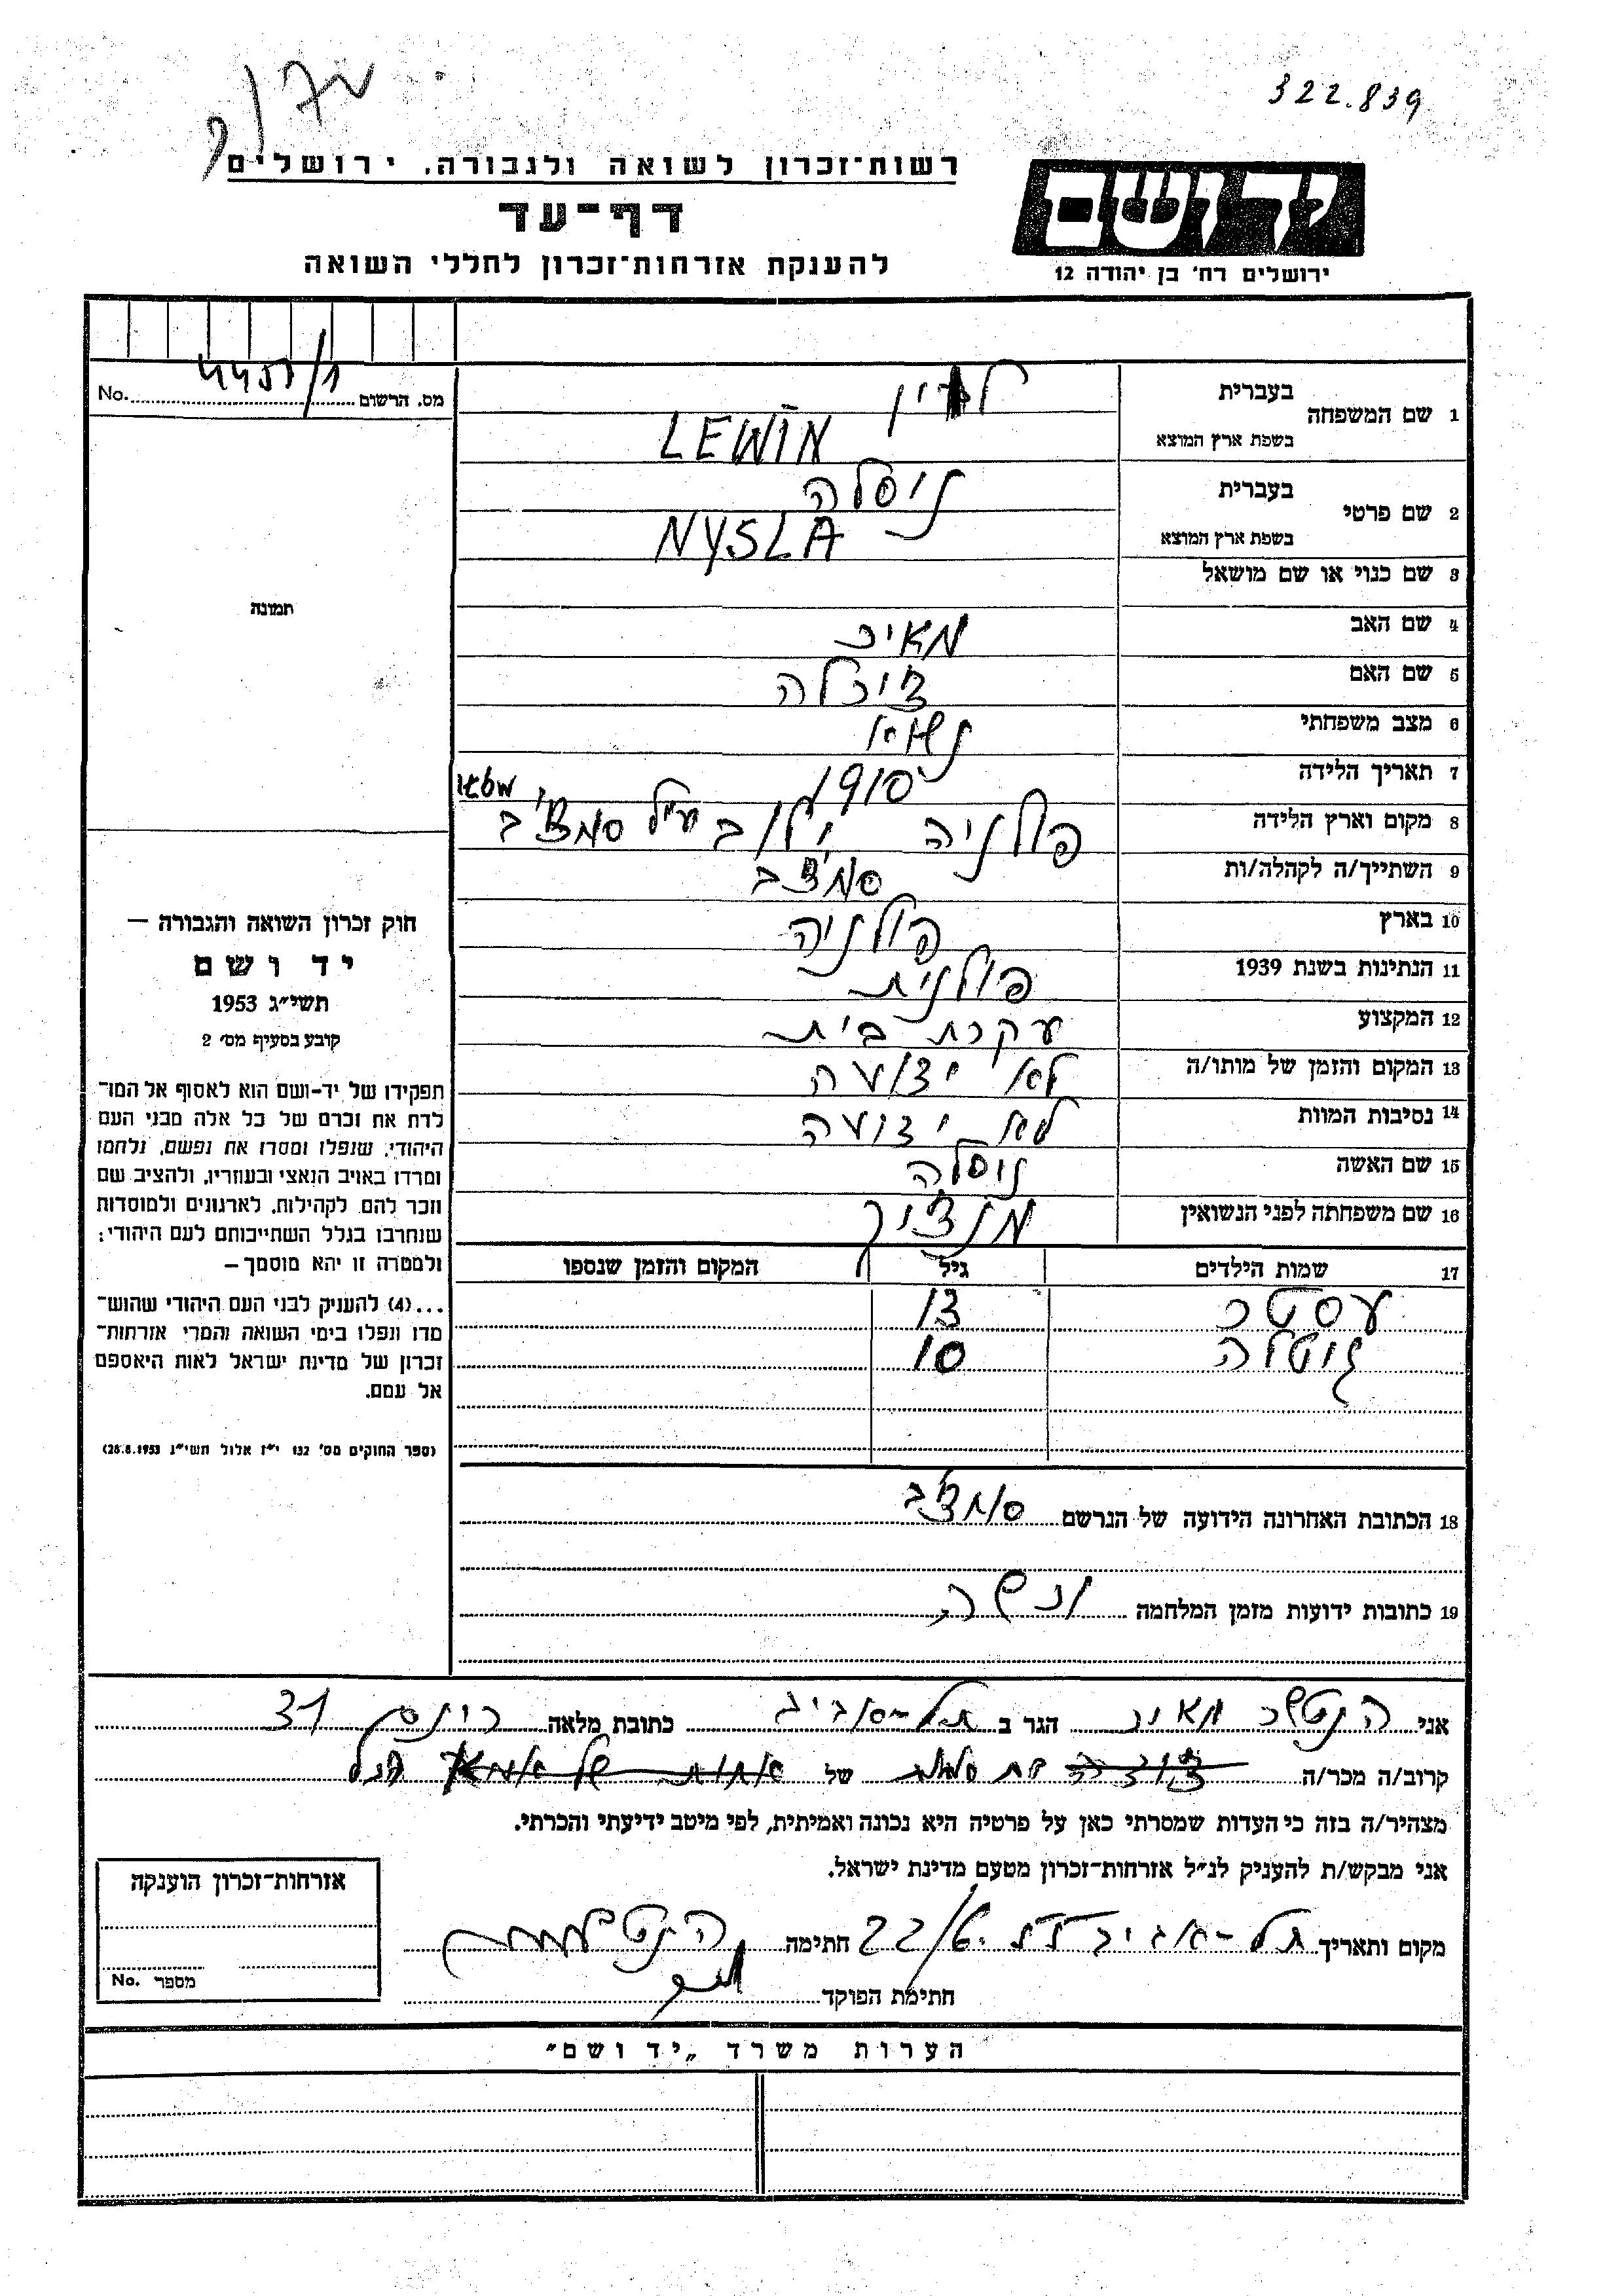 322.839
רשות־זכרון לשואה ולגבורה, ירושלים
יד ושם
דף־עד
להענקת אזרחות־זכרון לחללי השואה
ירושלים רח' בן יהודה 12
מס. הרשום 4457/1 No.
1 שם המשפחה
בעברית לוין
בשפת ארץ המוצא LEWIN
2 שם פרטי
בעברית ניסלה
בשפת ארץ המוצא NYSLA
3 שם כנוי או שם מושאל
תמונה
4 שם האב מאיר
5 שם האם
6 מצב משפחתי נשוא
7 תאריך הלידה 1910
8 מקום וארץ הלידה פולניה
9 השתייך/ה לקהלה/ות
10 בארץ פולניה
11 הנתינות בשנת 1939 פולנית
12 המקצוע עקרת בית
13 המקום והזמן של מותו/ה לא ידועה
14 נסיבות המוות לא ידועה
15 שם האשה ניסלה
16 שם משפחתה לפני הנשואין
17 שמות הילדים גיל המקום והזמן שנספו
עסטר 13
גיטלה 10
חוק זכרון השואה והגבורה —
יד ושם
תשי"ג 1953
קובע בסעיף מס' 2
תפקידו של יד-ושם הוא לאסוף אל המו־
לדת את זכרם של כל אלה מבני העם
היהודי, שנפלו ומסרו את נפשם, נלחמו
ומרדו באויב הנאצי ובעוזריו, ולהציב שם
וזכר להם, לקהילות, לארגונים ולמוסדות
שנחרבו בגלל השתייכותם לעם היהודי;
ולמטרה זו יהא מוסמך —
...(4) להעניק לבני העם היהודי שהוש־
מדו ונפלו בימי השואה והמרי אזרחות־
זכרון של מדינת ישראל לאות היאספם
אל עמם.
(ספר החוקים מס' 132 י"ז אלול תשי"ג 28.8.1953)
18 הכתובת האחרונה הידועה של הנרשם
19 כתובות ידועות מזמן המלחמה
אני הגר ב תל-אביב כתובת מלאה 31
קרוב/ה מכר/ה של הנ"ל
מצהיר/ה בזה כי העדות שמסרתי כאן על פרטיה היא נכונה ואמיתית, לפי מיטב ידיעתי והכרתי.
אני מבקש/ת להעניק לנ"ל אזרחות־זכרון מטעם מדינת ישראל.
מקום ותאריך תל-אביב חתימה
חתימת הפוקד
אזרחות־זכרון הוענקה
מספר No.
הערות משרד „יד ושם"